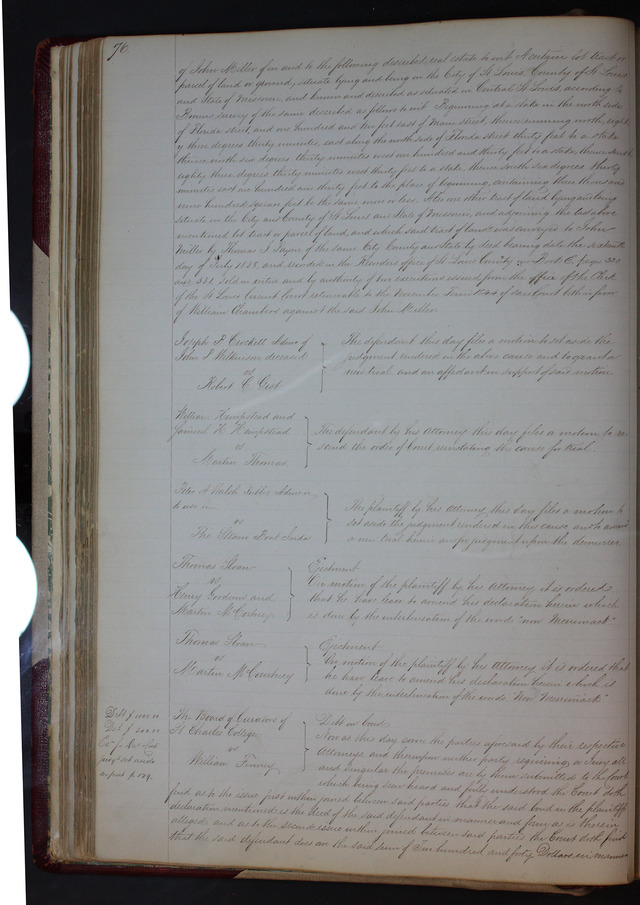 76
of John Miller of in and to the following described real estate to wit A certain lot tract or
parcel of land or ground, situate lying and being in the City of St Louis, County of St Louis
and State of Missouri, and known and described as situated in Central St Louis, according to
survey of the same described as follows to wit Beginning at a stake in the north side
of Florida street, and one hundred and ten feet east of Main street, thence running north eighty
three degrees thirty minutes, east along the north side of Florida street thirty feet to a stake
thence north six degrees thirty minutes west one hundred and thirty feet to a stake, thence south
eighty three degrees thirty minutes west thirty feet to a stake, thence south six degrees thirty
minutes east one hundred and thirty feet to the place of beginning, containing three thousand
nine hundred square feet be the same more or less. Also one other tract of land lying and being
situate in the City and County of St Louis and State of Missouri, and adjoining the last above
mentioned lot tract or parcel of land, and which said tract of land was conveyed to John
Miller by Thomas J Payne of the same City County and State by deed bearing date the
day of July and recorded in the Recorders office of St Louis County page 330
and 331. Sold in entire and by authority of four executions issued from the office of the Clerk
of the St Louis Circuit Court returnable to the November Term of said Court both in favor
of William Chambers against the said John Miller.
Joseph P Crockett Admr of
John P Wilkinson deceased
vs
Robert C Cist
The defendant this day files a motion to set aside the
judgment rendered in the above cause and to grant a
new trial and an affidavit in support of said motion
William Hempstead and
Samuel K Hempstead
vs
Martin Thomas
The defendant by his Attorney this day files a motion to re
scind the order of Court reinstating this cause for trial.
Peter A Walsh Public Admr
to use
vs
The Steam Boat
The plaintiff by his Attorney this day files a motion to
set aside the judgment rendered in this cause and to award
a new trial herein judgment upon the demurrer
Thomas Sloan
vs
Henry and
Martin McCourtney
Ejectment
On motion of the plaintiff by his Attorney it is ordered
that he have leave to amend his declaration herein which
is done by the interlineation of the words "now Merrimack"
Thomas Sloan
vs
Martin McCourtney
Ejectment
On motion of the plaintiff by his Attorney it is ordered that
he have leave to amend his declaration herein which is
done by the interlineation of the words "Now Merrimack"
The Board of Curators of
St Charles College
vs
William Finney
Debt on bond
Now at this day come the parties aforesaid by their respective
Attorneys and thereupon neither party requiring a Jury all
and singular the premises are by them submitted to the Court
which being seen heard and fully understood the Court doth
find as to the issue first within joined between said parties that the said bond in the plaintiffs
declaration mentioned is the deed of the said defendant in manner and form as is therein
alleged and as to the second issue within joined between said parties the Court doth find
that the said defendant does owe the said sum of Ten hundred and forty Dollars, in manner